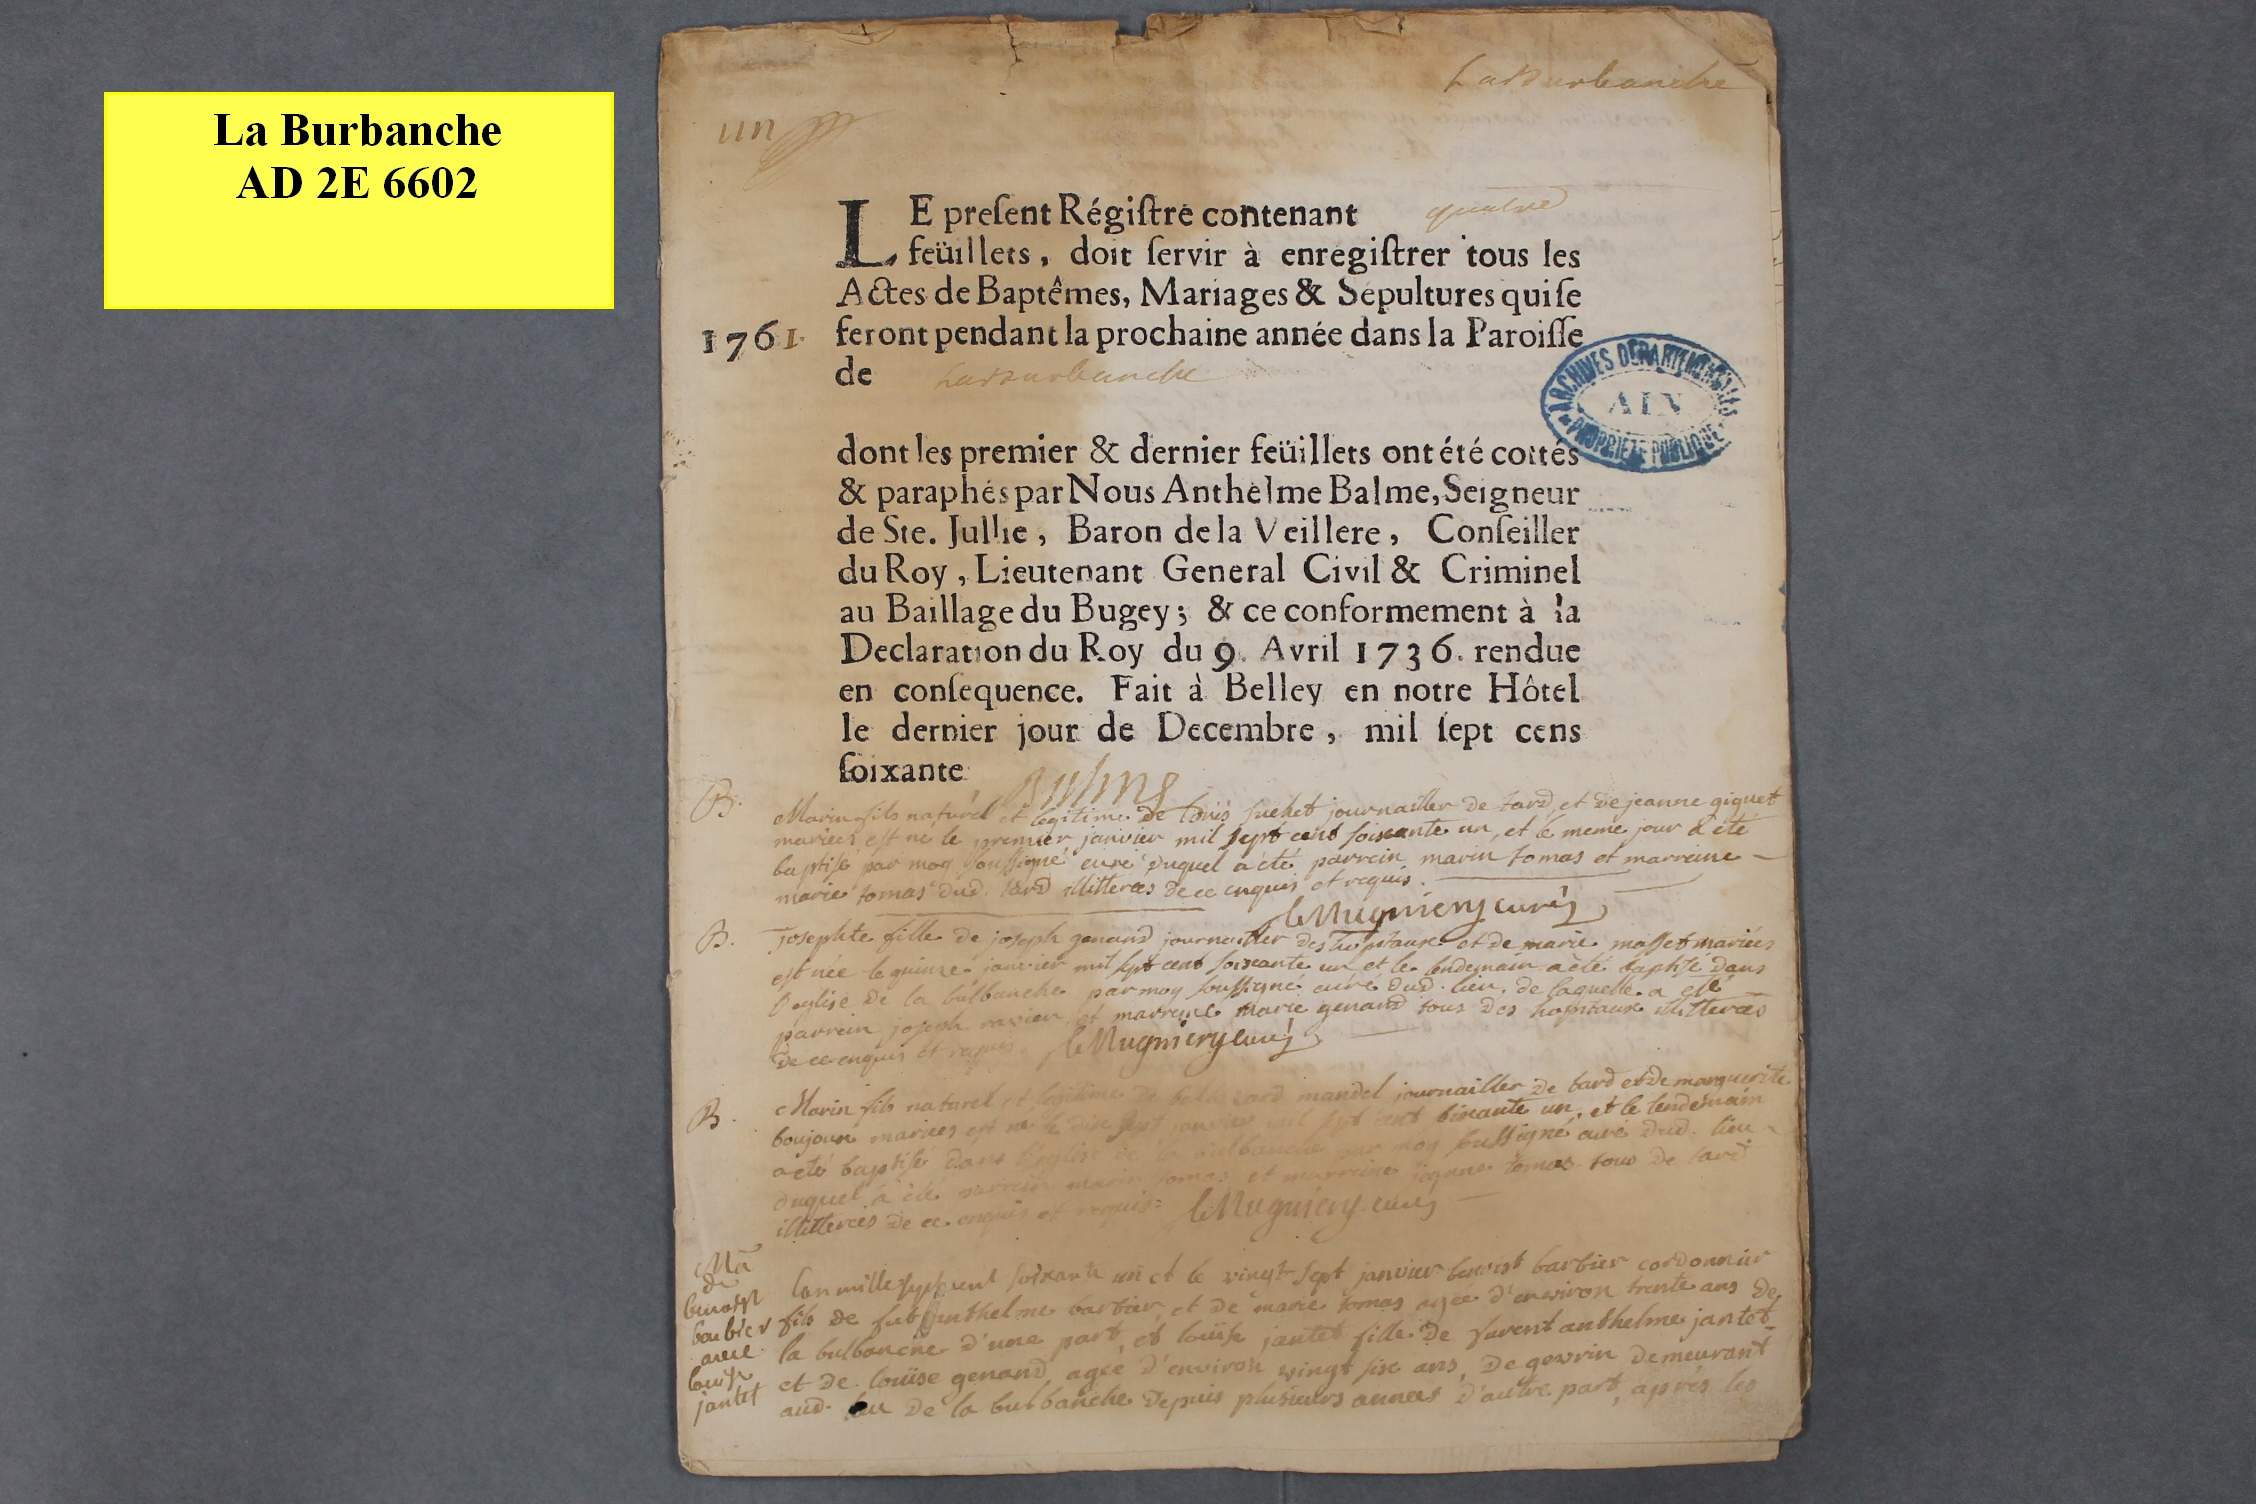 La Burbanche
AD 2E 6602
La Burbanche
un
LE preſent Régiſtre contenant quatre
feüillets, doit ſervir à enregiſtrer tous les
Actes de Baptêmes, Mariages & Sépultures qui ſe
1761. feront pendant la prochaine année dans la Paroiſſe
de La Burbanche
ARCHIVES DÉPARTEMENTALES
AIN
PROPRIÉTÉ PUBLIQUE
dont les premier & dernier feüillets ont été cottés
& paraphés par Nous Anthelme Balme, Seigneur
de Ste. Jullie, Baron de la Veillere, Conſeiller
du Roy, Lieutenant General Civil & Criminel
au Baillage du Bugey; & ce conformement à la
Declaration du Roy du 9. Avril 1736. rendue
en conſequence. Fait à Belley en notre Hôtel
le dernier jour de Decembre, mil ſept cens
ſoixante
B. Marin fils naturel et legitime de Louis suchet journallier de tard, et de jeanne giguet
mariees est né le premier janvier mil sept cent soixante un, et le meme jour a été
baptisé par moy soussigné curé duquel a été parrein marin tomas et marreine
marie tomas dud. tard illitterees de ce enquis et requis.
le Mugniery curé
B. josephte fille de joseph genand journallier des hopitaux et de marie masset mariees
est née le quinze janvier mil sept cent soixante un et le lendemain a été baptisé dans
l'eglise de la bulbanche par moy soussigné curé dud. lieu. de laquelle a eté
parrein joseph ravier et marreine marie genand tous des hopitaux illitterees
de ce enquis et requis. le Mugniery curé
B. Marin fils naturel et legitime de mandel journailler de tard et de marguerite
boujon mariees est né le dix sept janvier mil sept cent soixante un, et le lendemain
a été baptisé dans l'eglise de la bulbanche par moy soussigné curé dud. lieu
duquel a été parrein marin tomas et marreine jeanne tomas tous de tard
illitterees de ce enquis et requis. le Mugniery curé
Ma
de
benoist
barbier
avec
louise
jantet
L'an mille sept cent soixante un et le vingt sept janvier benoist barbier cordonnier
fils de fut anthelme barbier, et de marie tomas agée d'environ trente ans de
la bulbanche d'une part, et louise jantet fille de anthelme jantet
et de louise genand, agée d'environ vingt six ans, de gevrin demeurant
aud. lieu de la bulbanche depuis plusieurs annees d'autre part, après les